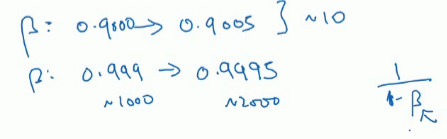 β: 0.9000 → 0.9005 } ~10
β: 0.999 → 0.9995
~1000 ~2000
1
1-β